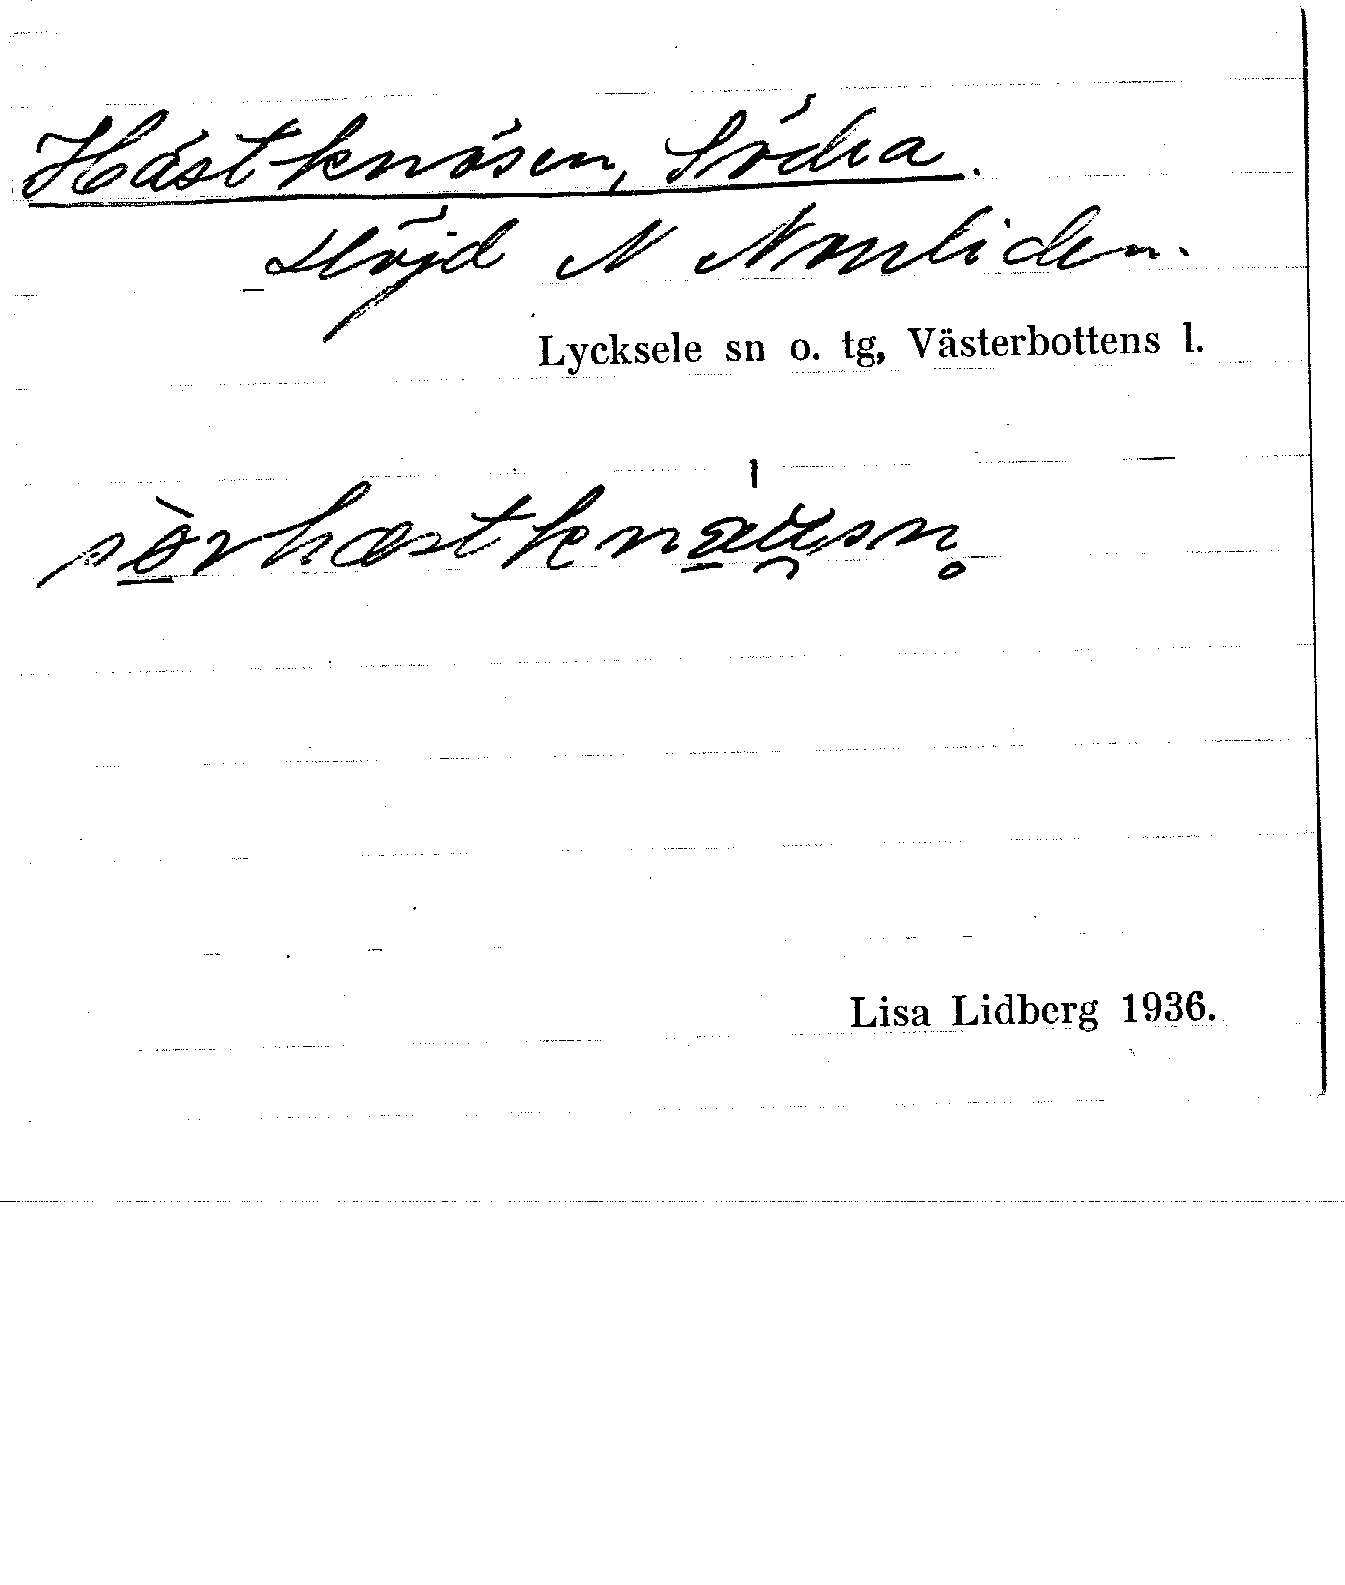 Hästknösen, Södra.
Höjd N Norrliden.
Lycksele sn o. tg, Västerbottens l.
Lisa Lidberg 1936.